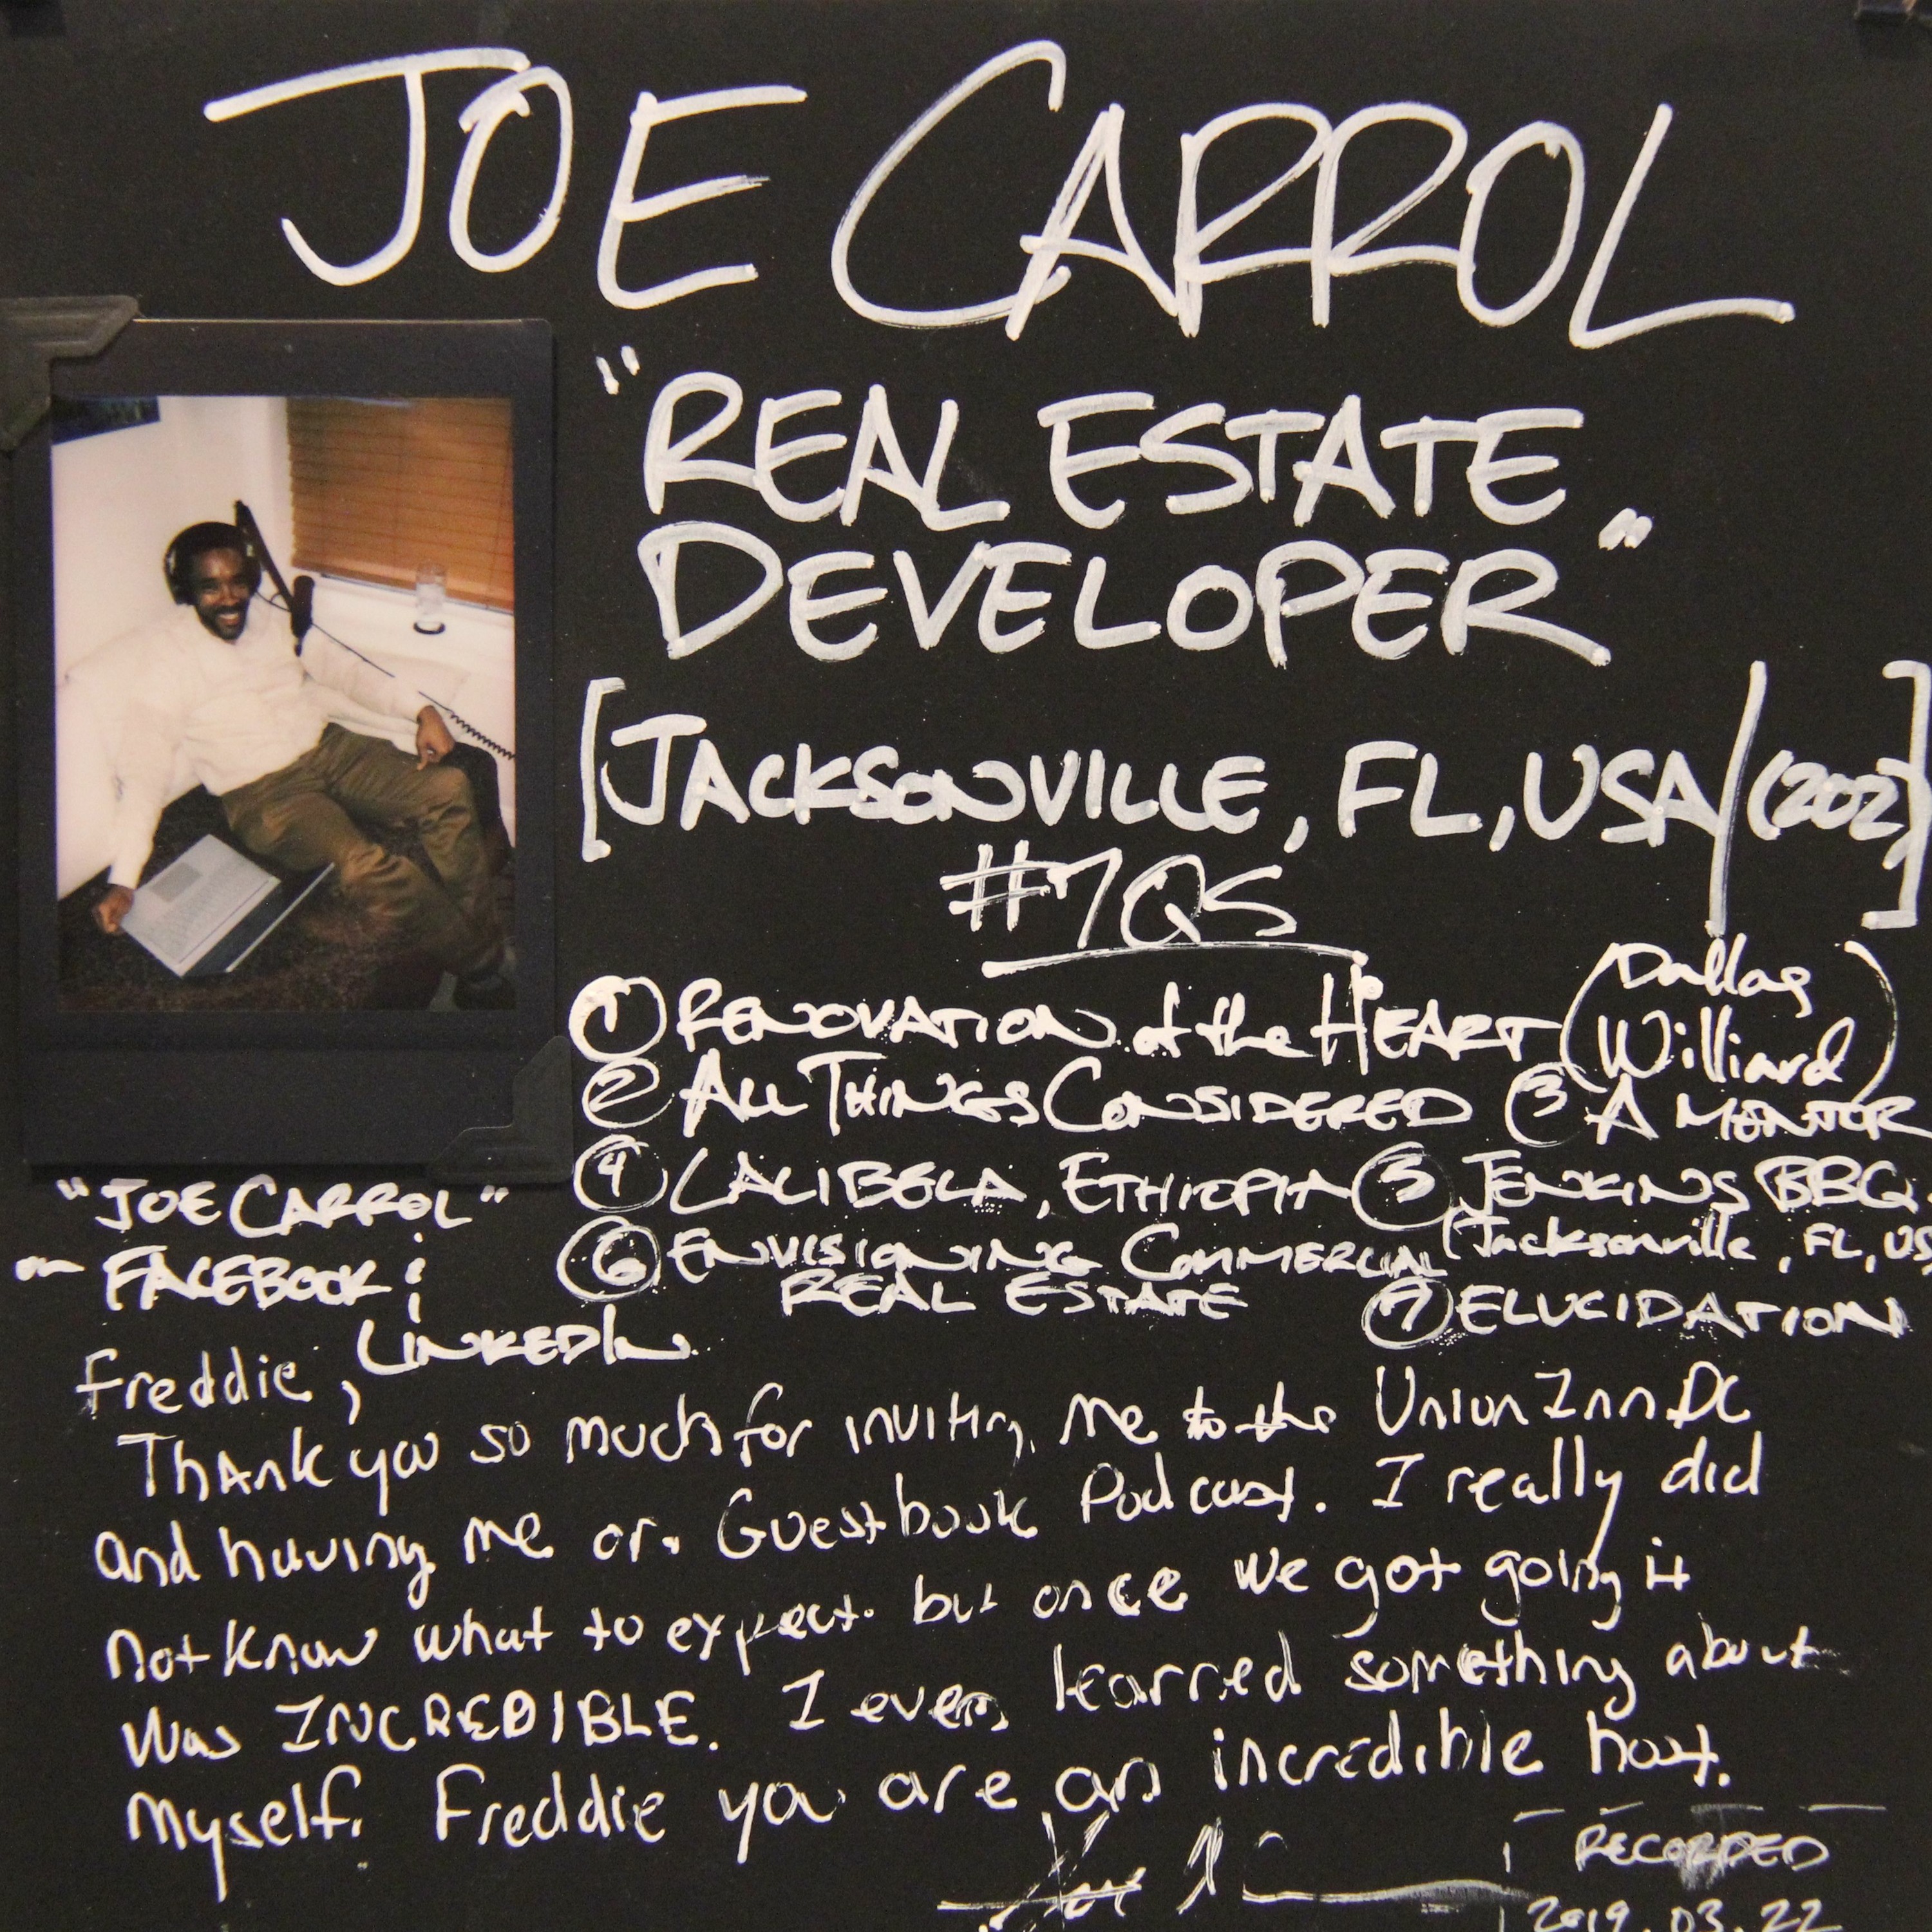 JOE CARROL
"REAL ESTATE
DEVELOPER"
[JACKSONVILLE, FL, USA/(202]
#7QS
① RENOVATION of the HEART (Dallas Williard)
② ALL THINGS CONSIDERED ③ A MENTOR
④ LALIBELA, ETHIOPIA ⑤ JENKINS BBQ
(Jacksonville, FL, US
⑥ ENVISIONING COMMERCIAL
REAL ESTATE ⑦ ELUCIDATION
"JOE CARROL"
on FACEBOOK &
LINKEDIN
Freddie,
Thank you so much for inviting me to the Union Inn DC
and having me on Guestbook Podcast. I really did
not know what to expect but once we got going it
was INCREDIBLE. I even learned something about
myself. Freddie you are an incredible host.
Joe
RECORDED
2019.03.22